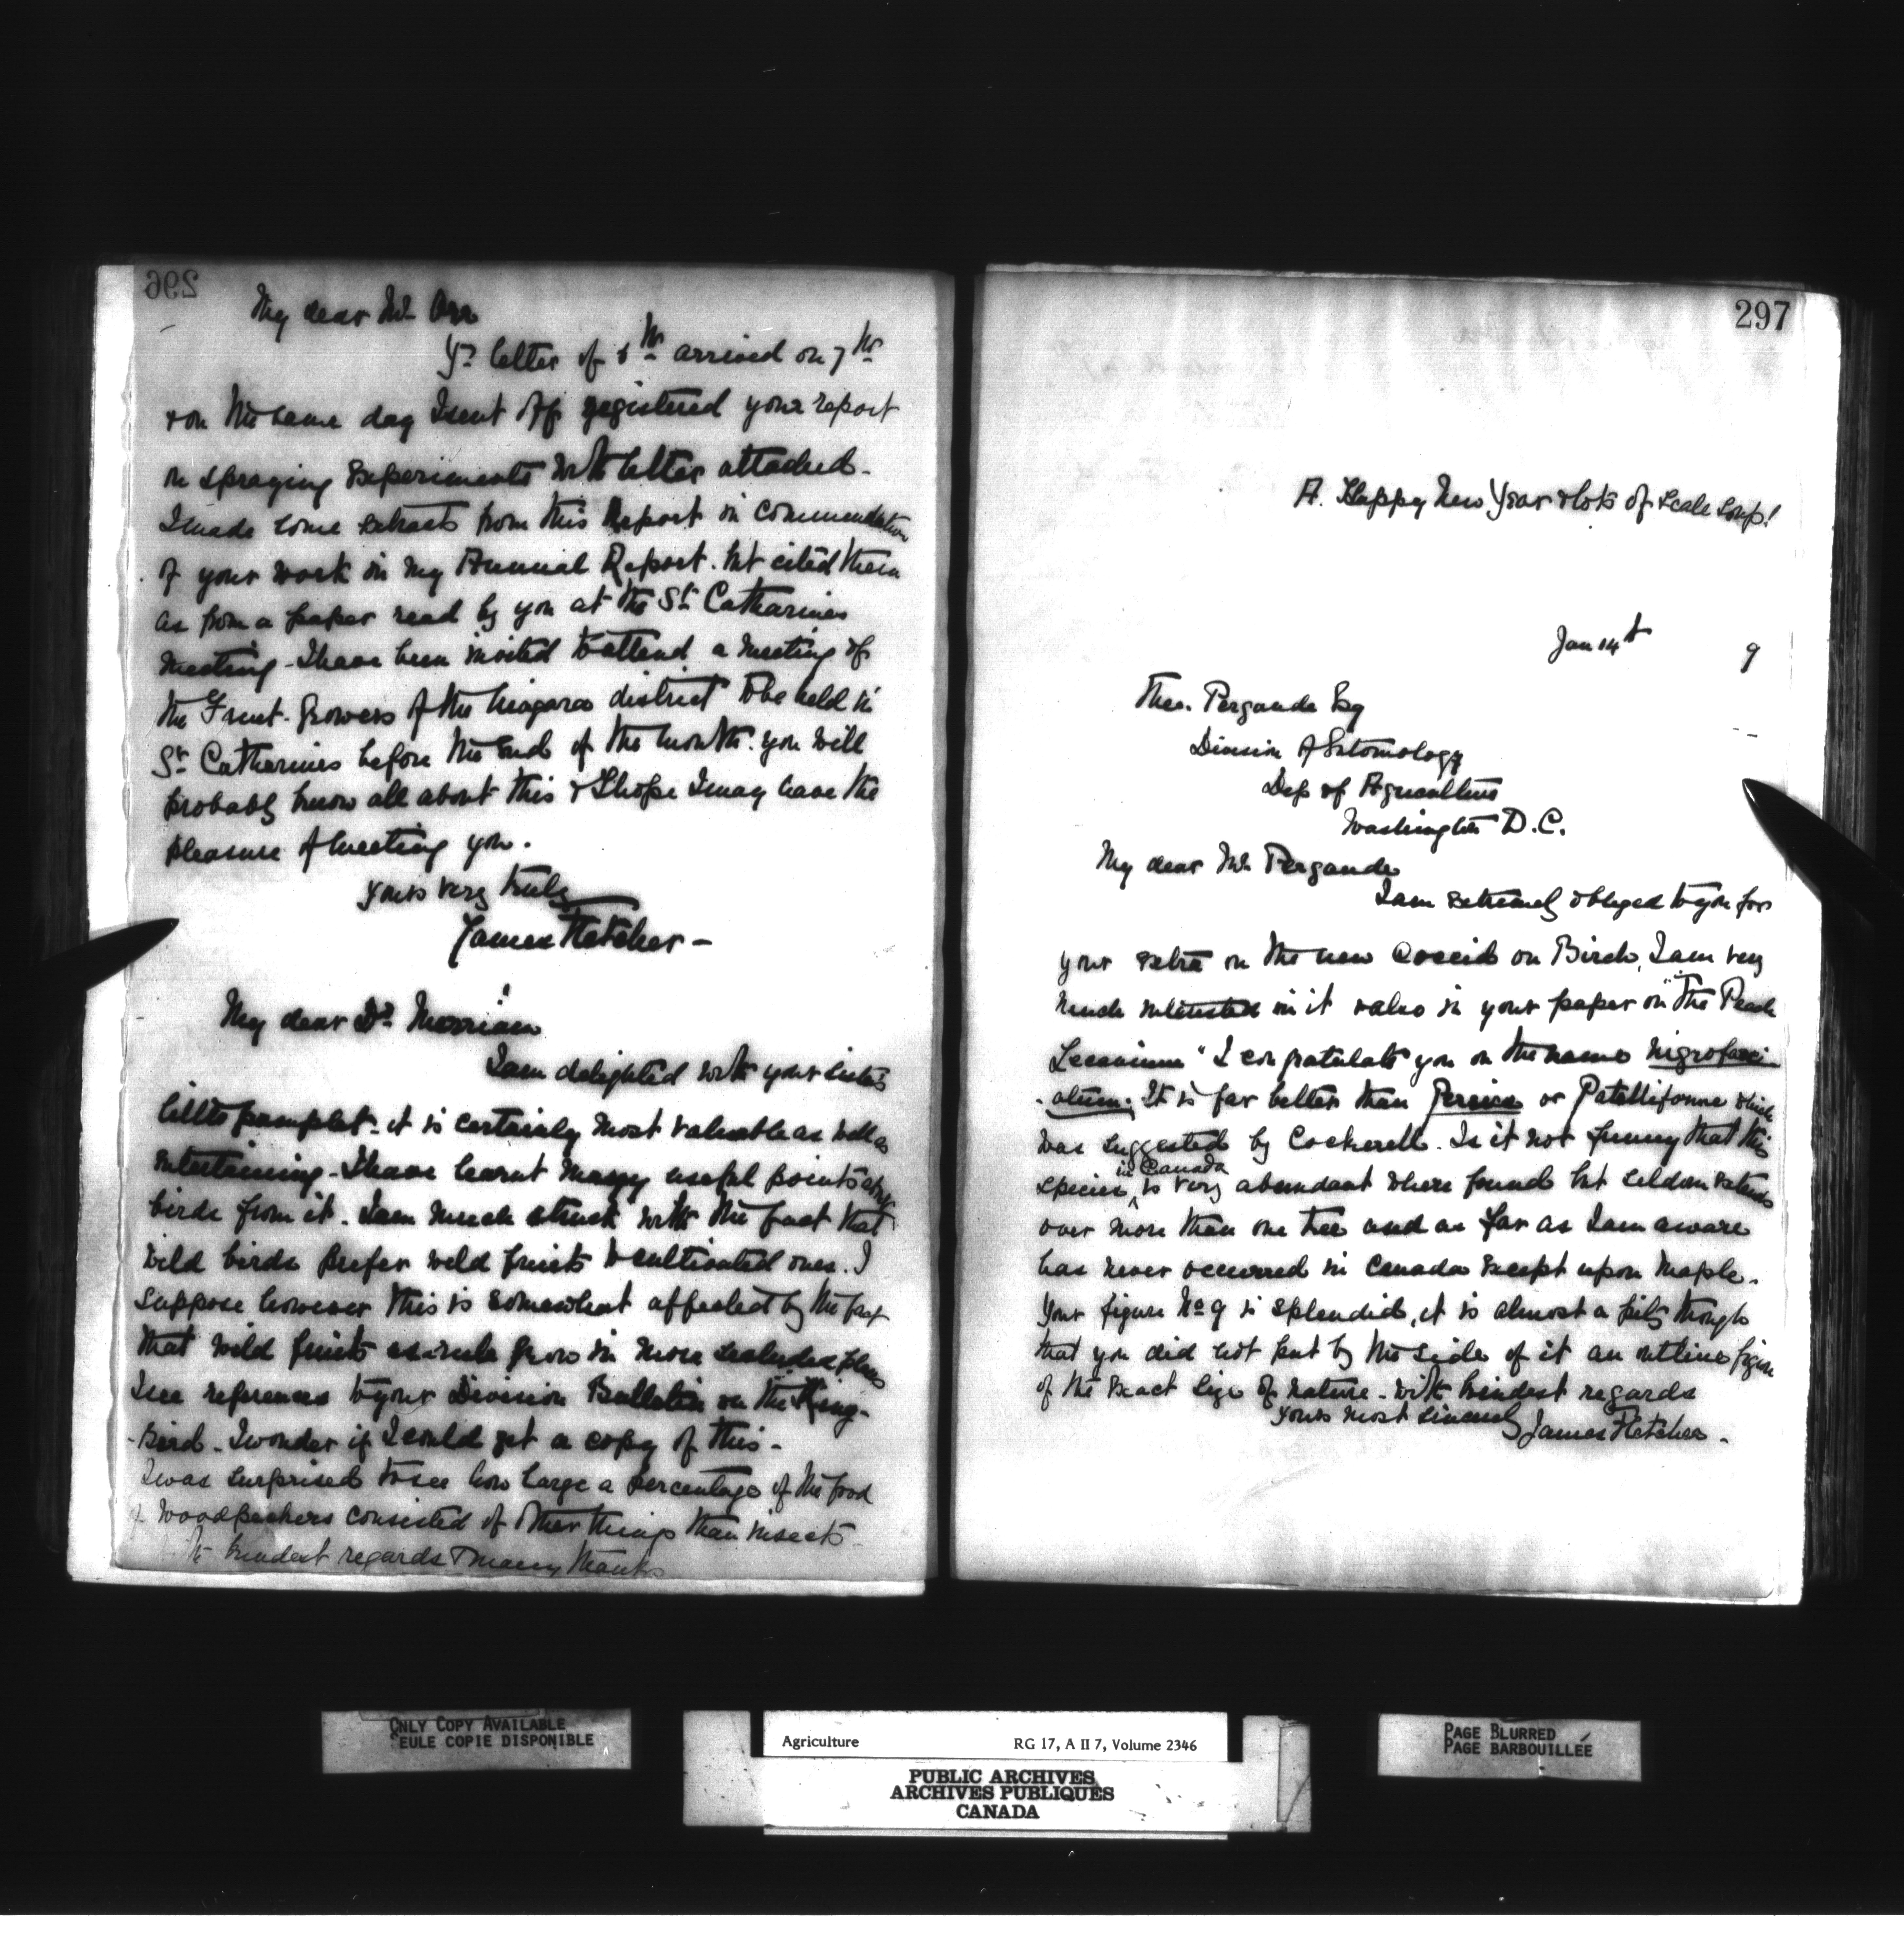 296
My dear Mr Orr
Yr letter of 5th arrived on 7th
& on the same day I sent off registered your report
on spraying Experiments with letter attached -
I made some extracts from this Report in commendation
of your work in my Annual Report. but cited them
as from a paper read by you at the St Catharines
meeting - I have been invited to attend a meeting of
the Fruit-Growers of the Niagara district to be held in
St Catharines before the end of the month. you will
probably know all about this & I hope I may have the
pleasure of meeting you.
Yours very truly
James Fletcher -
My dear Dr Merriam
I am delighted with your
little pamplet - it is certainly most valuable as well as
entertaining - I have learnt many useful points about
birds from it. I am much struck with the fact that
wild birds prefer wild fruits to cultivated ones. I
suppose however this is somewhat affected by the fact
that wild fruits as a rule grow in more secluded places
I see references to your Division Bulletin on the King-
-Bird - I wonder if I could get a copy of this -
I was surprised to see how large a percentage of the food
of woodpeckers consisted of other things than insects -
kindest regards & many thanks
297
A Happy New Year & lots of scale soup!
Jan 14th 9
Theo. Pergande Esq
Division of Entomology
Dep of Agriculture
Washington D.C.
My dear Mr Pergande
I am extremely obliged to you for
your extra on the new Coccid on Birch, I am very
much interested in it & also in your paper on "The Peach
Lecanium" I congratulate you on the name nigrofasci-
-atum. It is far better than Persica or Patelliforme which
was suggested by Cockerell. Is it not funny that this
species in Canada is very abundant where found but seldom extends
over more than one tree and as far as I am aware
has never occurred in Canada except upon Maple.
Your figure No 9 is splendid, it is almost a pity though
that you did not put by the side of it an outline figure
of the exact size of nature - with kindest regards
Yours most sincerely
James Fletcher -
ONLY COPY AVAILABLE
SEULE COPIE DISPONIBLE
Agriculture RG 17, A II 7, Volume 2346
PUBLIC ARCHIVES
ARCHIVES PUBLIQUES
CANADA
PAGE BLURRED
PAGE BARBOUILLÉE